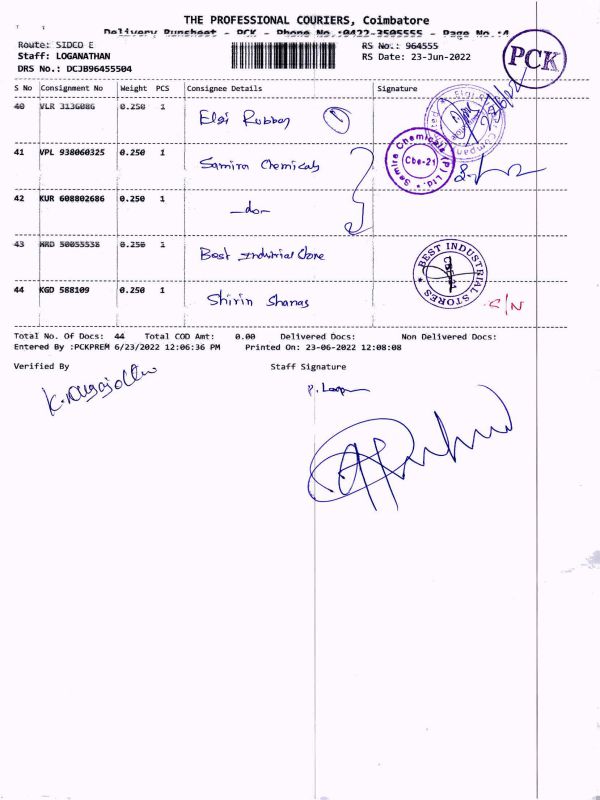 THE PROFESSIONAL COURIERS, Coimbatore
Delivery Runsheet - PCK - Phone No.:0422-3505555 - Page No.:4
Route: SIDCO E
RS No.: 964555
Staff: LOGANATHAN
RS Date: 23-Jun-2022
DRS No.: DCJB96455504
PCK
S No Consignment No Weight PCS Consignee Details Signature
40 VLR 3136086 0.250 1 Elgi Rubber 1
41 VPL 938060325 0.250 1 Samira Chemicals
Samira Chemicals (P) Ltd.
Cbe-21
42 KUR 608802686 0.250 1 -do-
43 MRD 50055538 0.250 1 Best Industrial Store
BEST INDUSTRIAL STORES
CBE-21
44 KGD 588109 0.250 1 Shirin Shanas
S/N
Total No. Of Docs: 44 Total COD Amt: 0.00 Delivered Docs: Non Delivered Docs:
Entered By :PCKPREM 6/23/2022 12:06:36 PM Printed On: 23-06-2022 12:08:08
Verified By Staff Signature